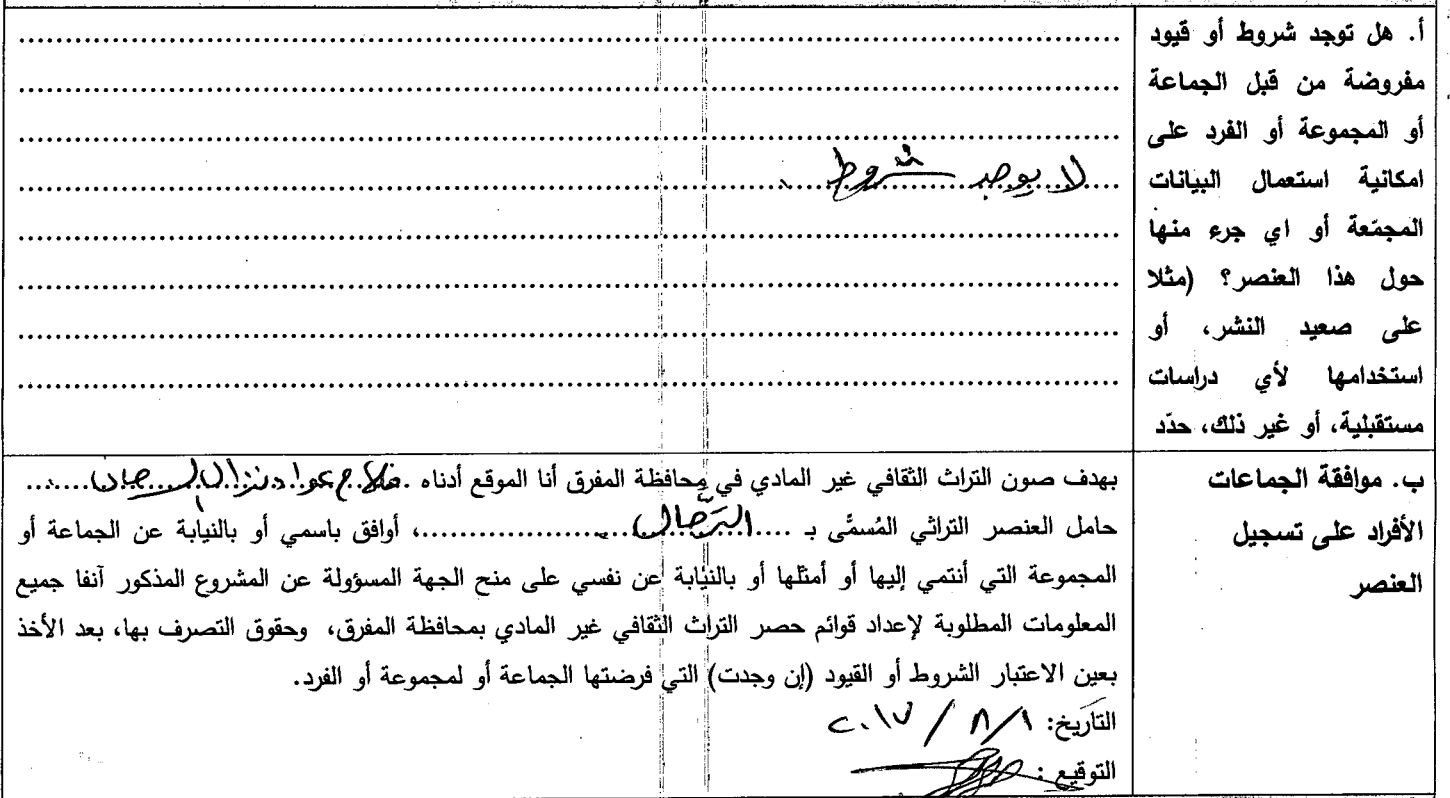 أ. هل توجد شروط أو قيود
مفروضة من قبل الجماعة
أو المجموعة أو الفرد على
امكانية استعمال البيانات
المجمّعة أو اي جرء منها
حول هذا العنصر؟ (مثلا
على صعيد النشر، أو
استخدامها لأي دراسات
مستقبلية، أو غير ذلك، حدّد
لا يوجد شروط
ب. موافقة الجماعات
الأفراد على تسجيل
العنصر
بهدف صون التراث الثقافي غير المادي في محافظة المفرق أنا الموقع أدناه فلاح عواد نزال السرحان
حامل العنصر التراثي المُسمَّى بـ ....................، أوافق باسمي أو بالنيابة عن الجماعة أو
المجموعة التي أنتمي إليها أو أمثلها أو بالنيابة عن نفسي على منح الجهة المسؤولة عن المشروع المذكور آنفا جميع
المعلومات المطلوبة لإعداد قوائم حصر التراث الثقافي غير المادي بمحافظة المفرق، وحقوق التصرف بها، بعد الأخذ
بعين الاعتبار الشروط أو القيود (إن وجدت) التي فرضتها الجماعة أو لمجموعة أو الفرد.
التاريخ: ١/ ٨ / ٢٠١٧
التوقيع :